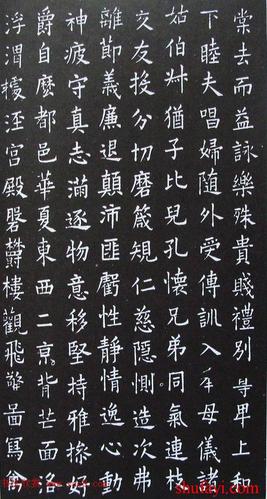 棠去而益詠樂殊貴賤禮別尊卑上
下睦夫唱婦隨外受傅訓入奉母儀諸
姑伯叔猶子比兒孔懷兄弟同氣連枝
交友投分切磨箴規仁慈隱惻造次弗
離節義廉退顛沛匪虧性靜情逸心動
神疲守真志滿逐物意移堅持雅操好
爵自縻都邑華夏東西二京背芒面洛
浮渭據涇宮殿磐鬱樓觀飛驚圖寫禽
shufaji.com